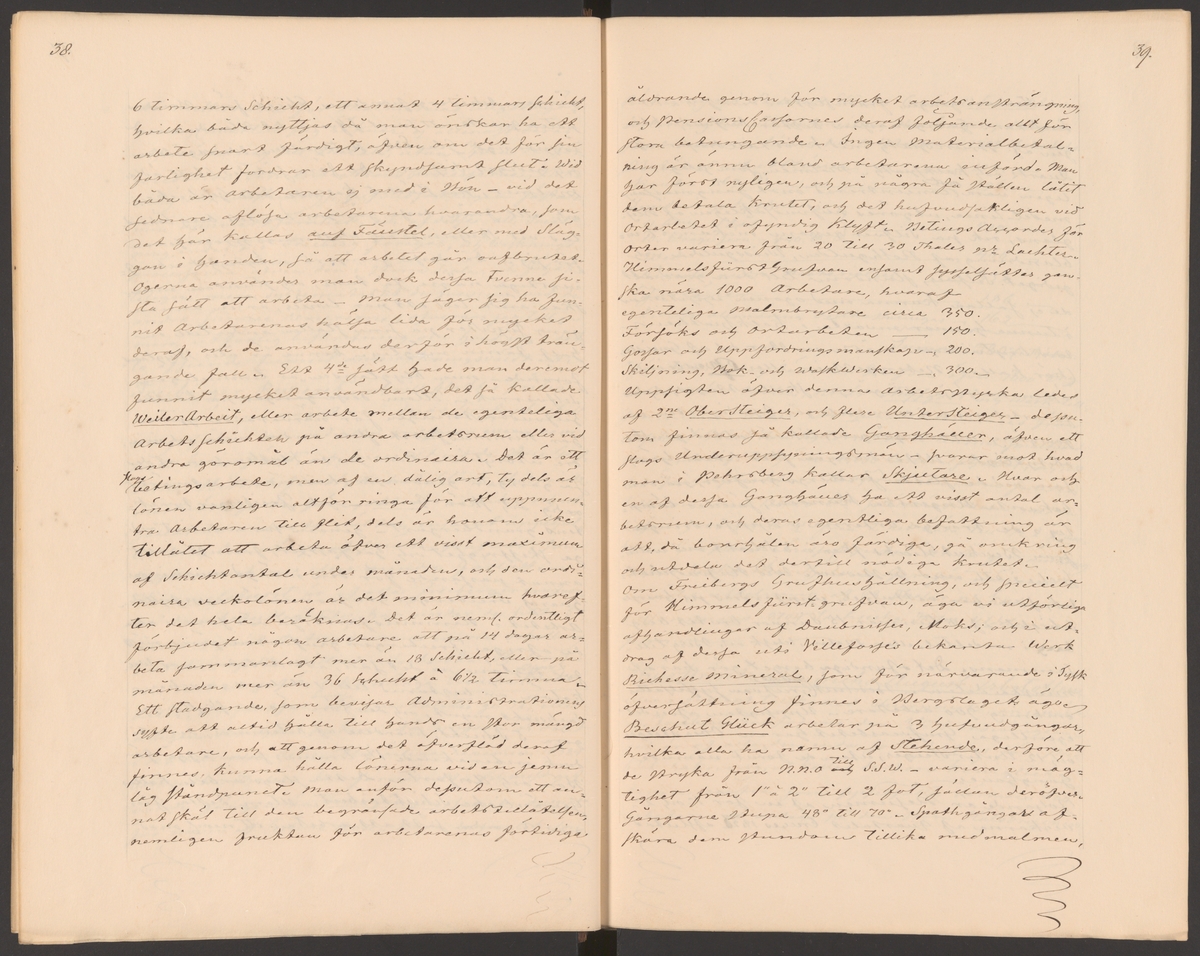 38.
6 timmars Schicht, ett annat 4 timmars Schicht,
hvilka båda nyttjas då man önskar ha ett
arbete snart färdigt, äfven om det för sin
farlighet fordrar ett skyndsamt slut. Wid
båda är arbetaren ej med i Hön – vid det
sednare aflösa arbetarena hvarandra, som
det här kallas auf Fäustel, eller med Släg-
gan i handen, så att arbetet går oafbrutet.
Ogerna användes man dock dessa tvenne si-
sta sätt att arbeta – Man säger sig ha fun-
nit Arbetarenas hälsa lida för mycket
deraf, och de användas derför i högst trän-
gande fall. Ett 4de sätt hade man deremot
funnit mycket användbart, det så kallade
Weiler Arbeit, eller arbete mellan de egenteliga
Arbets Schichten på andra arbetsrum eller vid
andra göromål än de ordinaira. Det är ett
betingsarbete, men af en dålig art, ty dels är
lönen vanligen alltför ringa för att uppmun-
tra Arbetaren till flit, dels är honom icke
tillåtet att arbeta öfver ett visst maximum
af Schichtantal under månaden, och den ordi-
naira veckolönen är det minimum hvaref-
ter det hela beräknas. Det är neml. ordentligt
förbjudet någon arbetare att på 14 dagar ar-
beta sammanlagt mer än 18 Schicht, eller på
månaden mer än 36 Schicht à 6 1/2 timma.
Ett stadgande, som bevisar Administrationens
syfte att altid hålla till hands en stor mängd
arbetare, och att genom det öfverflöd deraf
finnes, kunna hålla lönerna vid en jemn
låg ståndpunct. Man anför dessutom ett an-
nat skäl till den begränsade arbetstillåtelsen,
nemligen fruktan för arbetarenas förtidiga
39.
åldrande genom för mycket arbetsansträngning,
och Pensions Cassornes deraf följande allt för
stora betungande. Ingen Materialbetal-
ning är ännu bland arbetarena införd. Man
har först nyligen, och på några få ställen låtit
dem betala krutet, och det hufvudsakligen vid
Ortarbetet i ofyndig Klyft. Betings Accorder för
Orter variera från 20 till 30 Thaler pr Lachter.
Himmelsfürst Grufvan ensamt sysselsätter gan-
ska nära 1000 Arbetare, hvaraf
egenteliga Malmbrytare circa 350.
Försöks och Ortarbeten — 150.
Gossar och Uppfordringsmanskap — 200.
Skiljning, Bok- och Waskverken — 300.
Uppsigten öfver denna Arbetsstyrka ledes
af 2ne Obersteiger, och flere Untersteiger – dessu-
tom finnas så kallade Ganghäuer, äfven ett
slags Underuppsyningsmän – svarar mot hvad
man i Pehrsberg kallar Skjutare. Hvar och
en af dessa Ganghäuer ha ett visst antal ar-
betsrum, och deras egentliga befattning är
att, då borrhålen äro färdiga, gå omkring
och utdela det dertill nödiga krutet.
Om Freibergs Grufhushållning, och speciellt
för Himmelsfürst grufvan, äga vi utförliga
afhandlingar af Daubuisson, Mohs; och i ut-
drag af dessa uti Villefosse's bekanta Werk
Richesse minéral, som för närvarande i Tysk
öfversättning finnes i Bergslagets ägo
Beschert Glück arbetar på 3 hufvudgångar,
hvilka alla ha namn af Stehende, derföre att
de stryka från N.N.O till S.S.W. – variera i mäg-
tighet från 1" à 2" till 2 fot, sällan deröfver.
Gångarne stupa 48° till 70°. Spathgångar af-
skära dem stundom tillika med malmen,